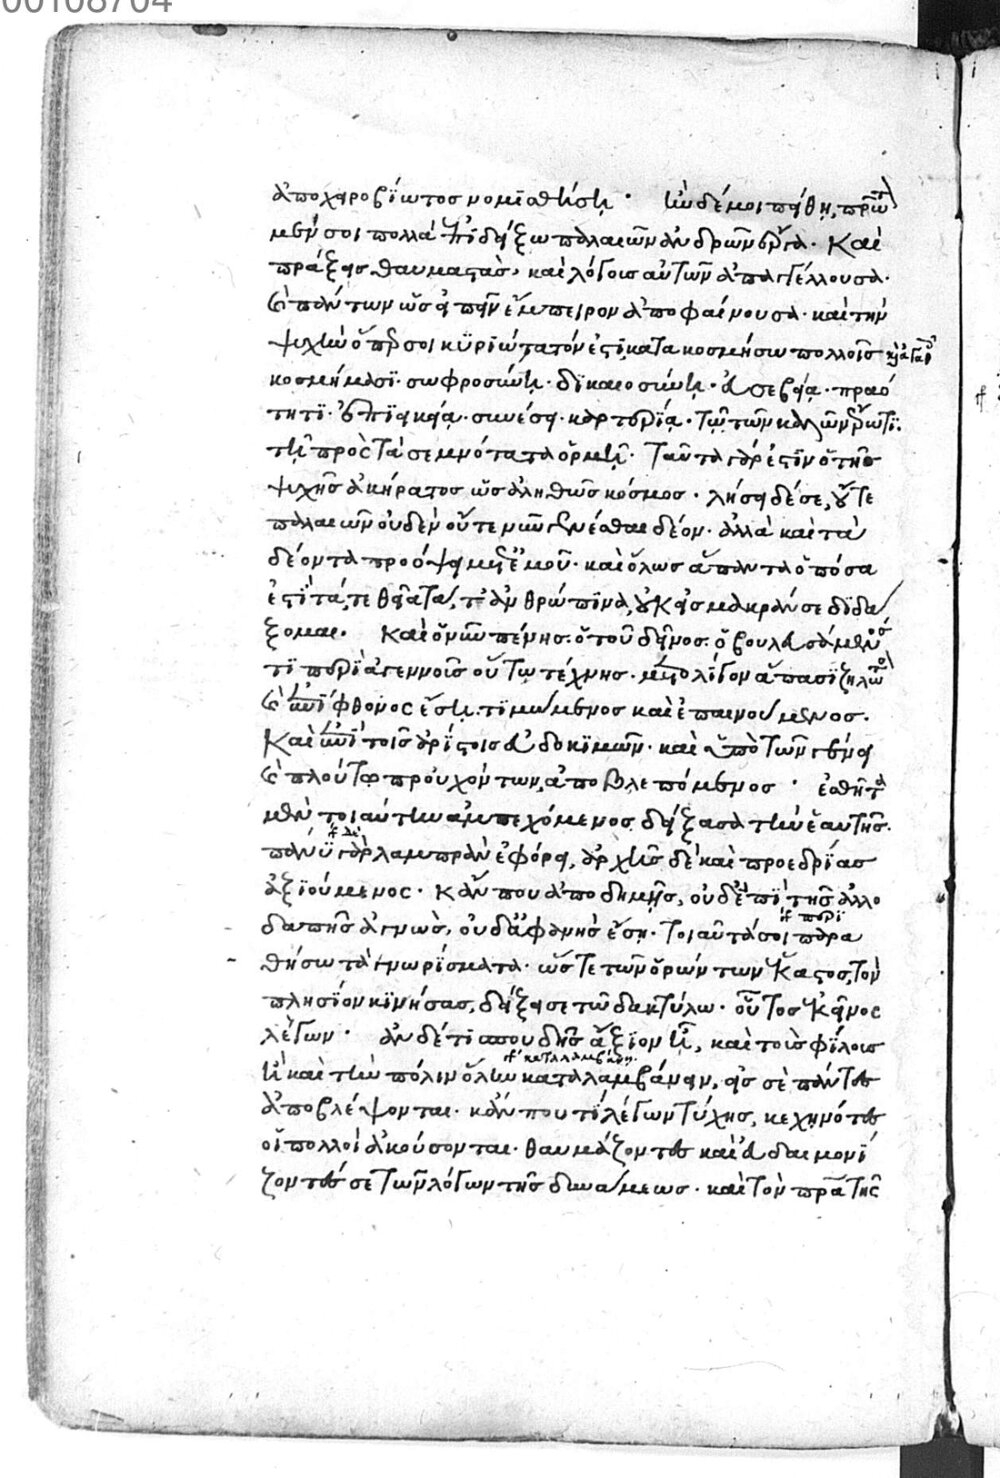 00108704
ἀποχειροβίωτος νομισθήσῃ · ἢν δέ μοι πείθῃ, πρῶτον
μέν σοι πολλὰ ἐπιδείξω παλαιῶν ἀνδρῶν ἔργα · Καὶ
πράξεις θαυμαστὰς, καὶ λόγους αὐτῶν ἀπαγγέλλουσα ·
καὶ πάντων ὡς εἰπεῖν ἔμπειρον ἀποφαίνουσα · καὶ τὴν
ψυχὴν ὅπερ σοι κυριώτατόν ἐστι κατακοσμήσω πολλοῖς καὶ ἀγαθοῖς
κοσμήμασι · σωφροσύνῃ · δικαιοσύνῃ · εὐσεβείᾳ · πραό
τητι · ἐπιεικείᾳ · συνέσει · καρτερίᾳ · τῷ τῶν καλῶν ἔρωτι ·
τῇ πρὸς τὰ σεμνότατα ὁρμῇ · Ταῦτα γάρ ἐστιν ὁ τῆς
ψυχῆς ἀκήρατος ὡς ἀληθῶς κόσμος · λήσει δέ σε, οὔτε
παλαιῶν οὐδὲν οὔτε νῦν γενέσθαι δέον · ἀλλὰ καὶ τὰ
δέοντα προόψει μετ' ἐμοῦ · καὶ ὅλως ἅπαντα ὁπόσα
ἐστί, τά, τε θεῖα τά, τ' ἀνθρώπινα, οὐκ εἰς μακράν σε διδά
ξομαι · Καὶ ὁ νῦν πένης · ὁ τοῦ δεῖνος · ὁ βουλευσάμενός
τι περὶ ἀγεννοῦς οὕτω τέχνης · μετ' ὀλίγον ἅπασι ζηλωτὸς
καὶ ἐπίφθονος ἔσῃ · τιμώμενος καὶ ἐπαινούμενος ·
Καὶ ἐπὶ τοῖς ἀρίστοις εὐδοκιμῶν · καὶ ὑπὸ τῶν γένει
καὶ πλούτῳ προὐχόντων, ἀποβλεπόμενος · ἐσθῆτα
μὲν τοιαύτην ἀμπεχόμενος δείξασα τὴν ἑαυτῆς ·
πάνυ γὰρ λαμπρὰν ἐφόρει, ἀρχῆς δὲ καὶ προεδρίας
ἀξιούμενος · Κἄν που ἀποδημῇς, οὐδ' ἐπὶ τῆς ἀλλο
δαπῆς ἀγνὼς, οὐδ' ἀφανὴς ἔσῃ · Τοιαῦτά σοι παρα
θήσω τὰ γνωρίσματα · ὥστε τῶν ὁρώντων ἕκαστος, τὸν
πλησίον κινήσας, δείξει σε τῷ δακτύλῳ · οὗτος ἐκεῖνος
λέγων · ἂν δέ τι σπουδῆς ἄξιον ᾖ, καὶ τοὺς φίλους
ἢ καὶ τὴν πόλιν ὅλην καταλαμβάνειν, εἰς σὲ πάντες
ἀποβλέψονται · κἄν που τι λέγων τύχῃς, κεχηνότες
οἱ πολλοὶ ἀκούσονται · θαυμάζοντες καὶ εὐδαιμονί
ζοντές σε τῶν λόγων τῆς δυνάμεως · καὶ τὸν πατέρα τῆς